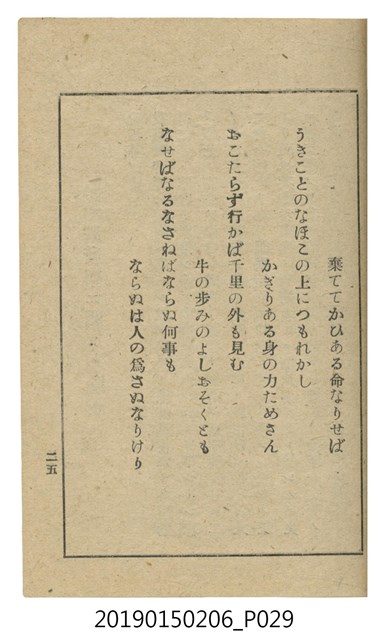 棄ててかひある命なりせば
うきことのなほこの上につもれかし
かぎりある身の力ためさん
おこたらず行かば千里の外も見む
牛の歩みのよしおそくとも
なせばなるなさねばならぬ何事も
ならぬは人の爲さぬなりけり
二五
20190150206_P029